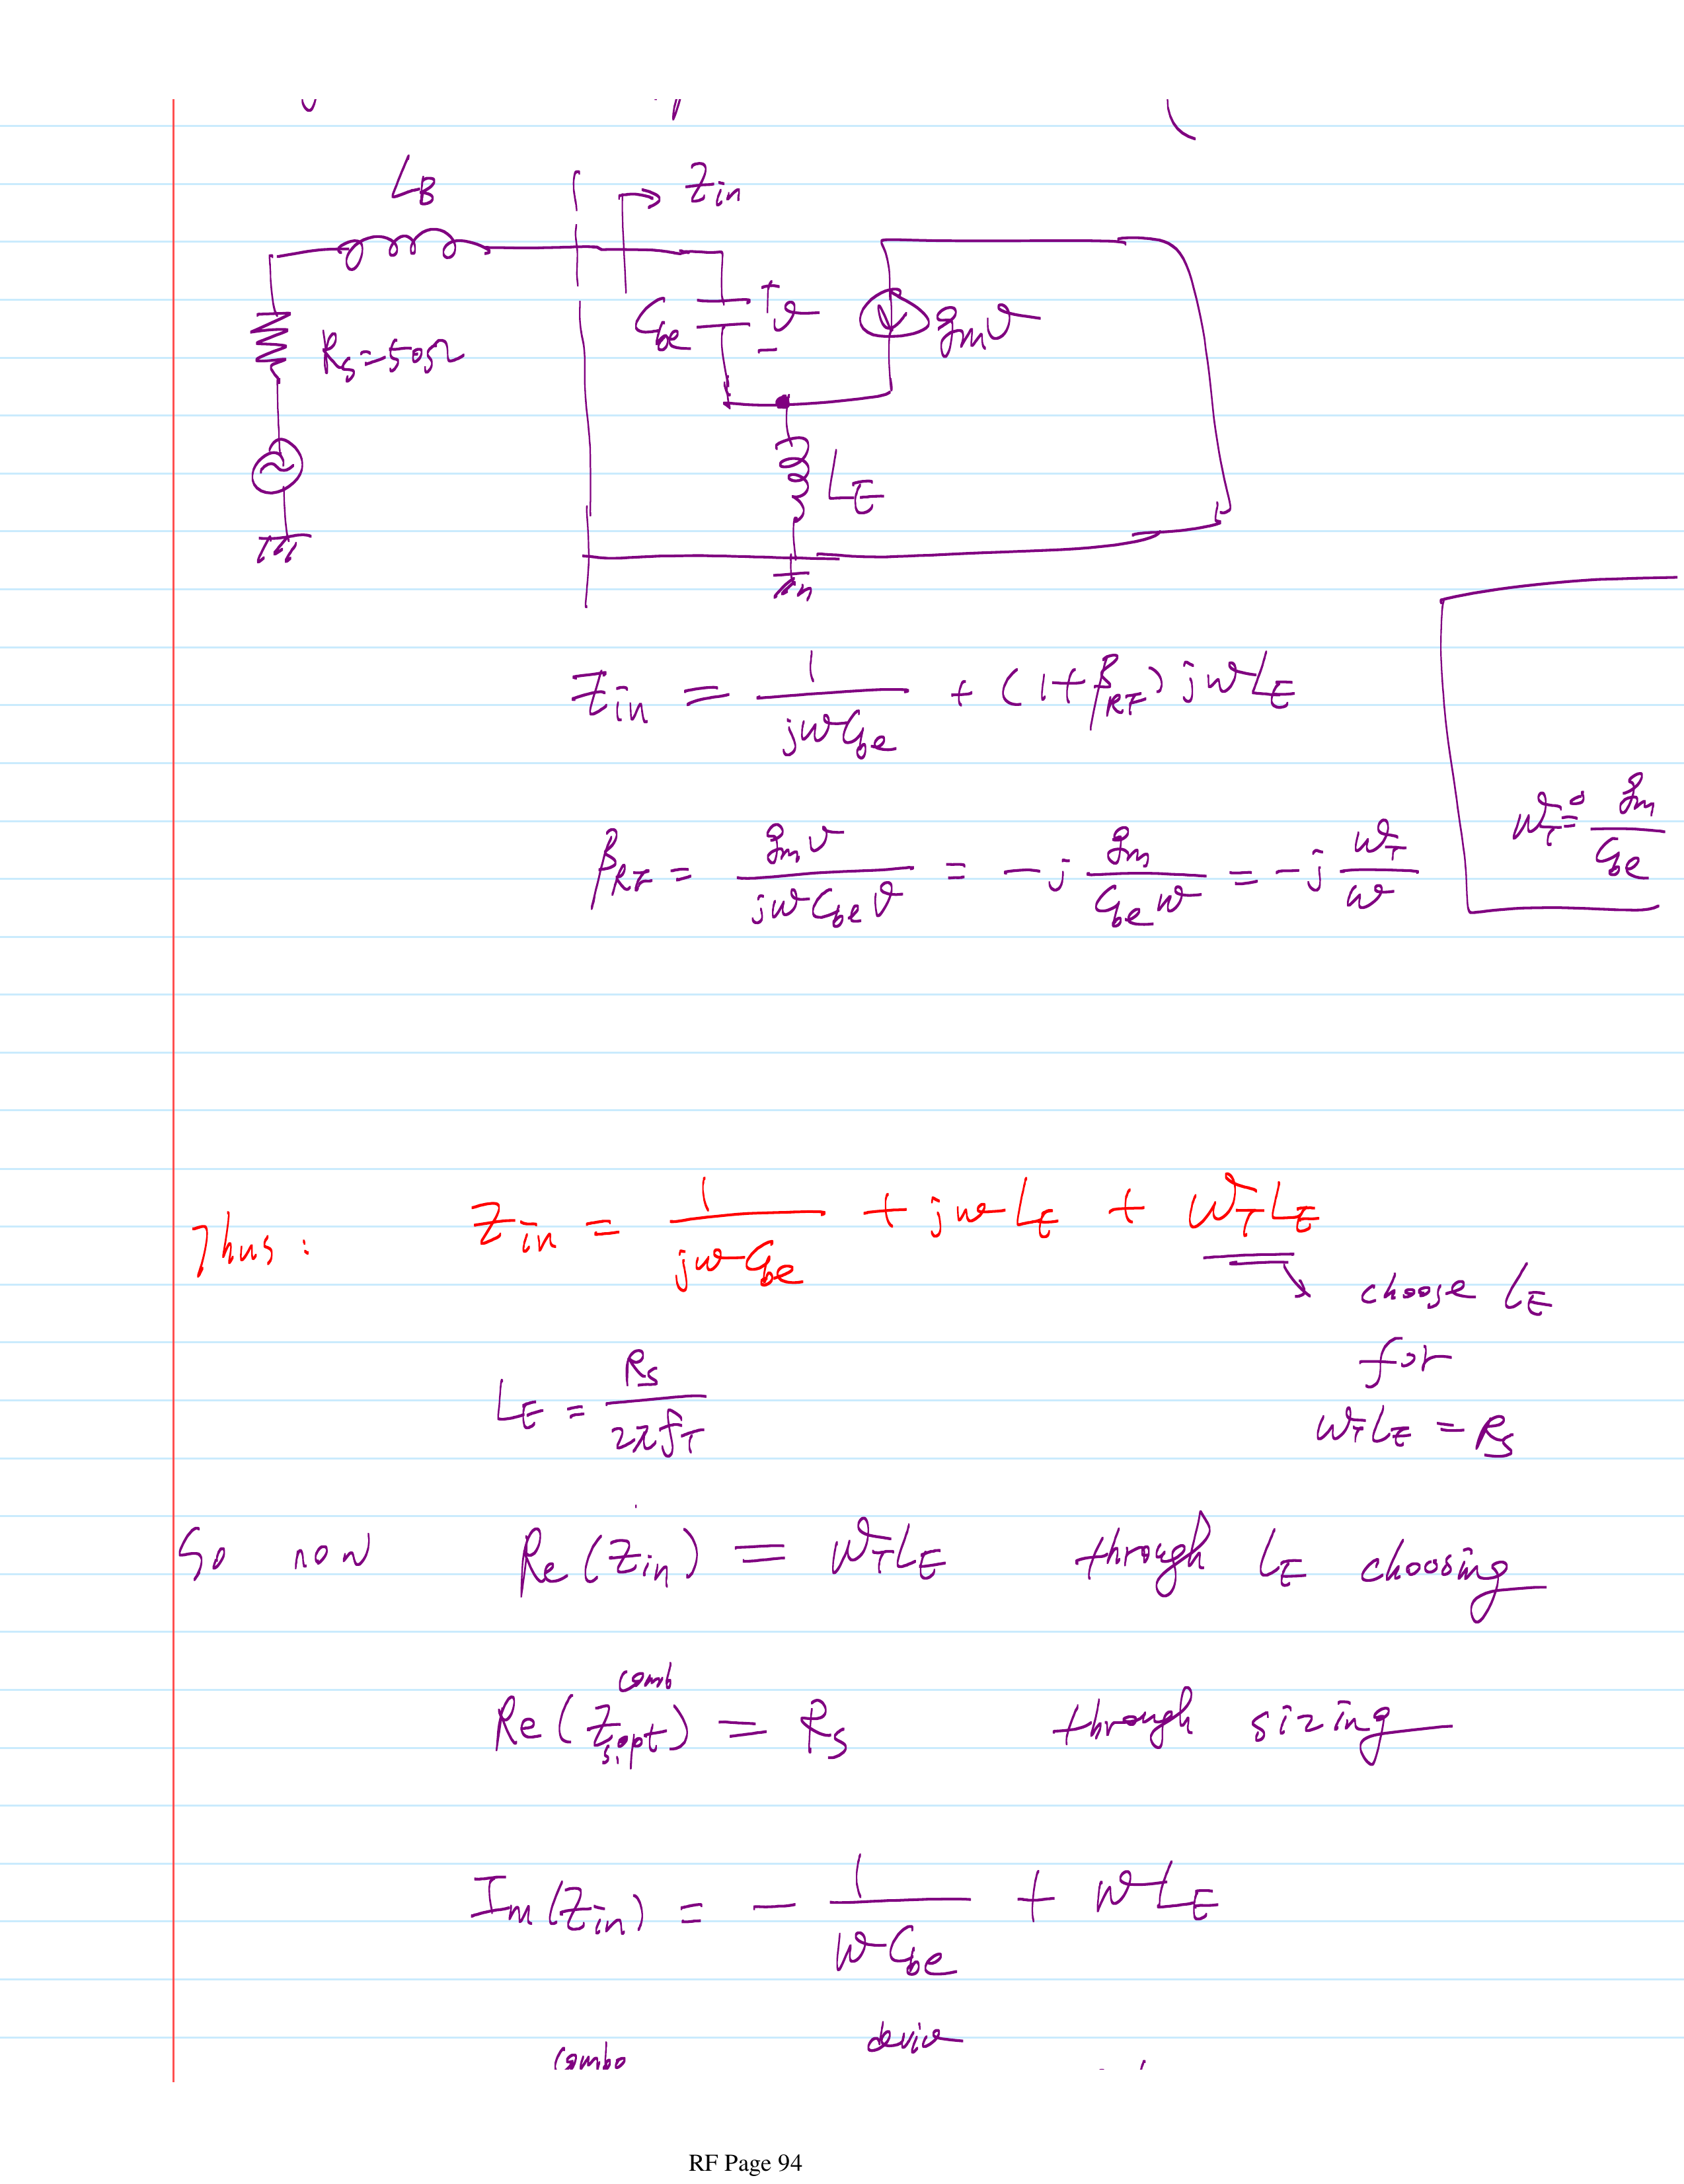 L_B
Z_in
R_s = 50Ω
C_be + v -
g_m v
L_E
Z_in = 1/(jωC_be) + (1+β_RF) jωL_E
β_RF = g_m v/(jωC_be v) = -j g_m/(C_be ω) = -j ω_T/ω
ω_T = g_m/C_be
Thus: Z_in = 1/(jωC_be) + jωL_E + ω_T L_E
choose L_E
for
ω_T L_E = R_s
L_E = R_s/(2πf_T)
So now Re(Z_in) = ω_T L_E through L_E choosing
Re(Z_s,opt^comb) = R_s through sizing
Im(Z_in) = - 1/(ωC_be) + ωL_E
combo device
RF Page 94